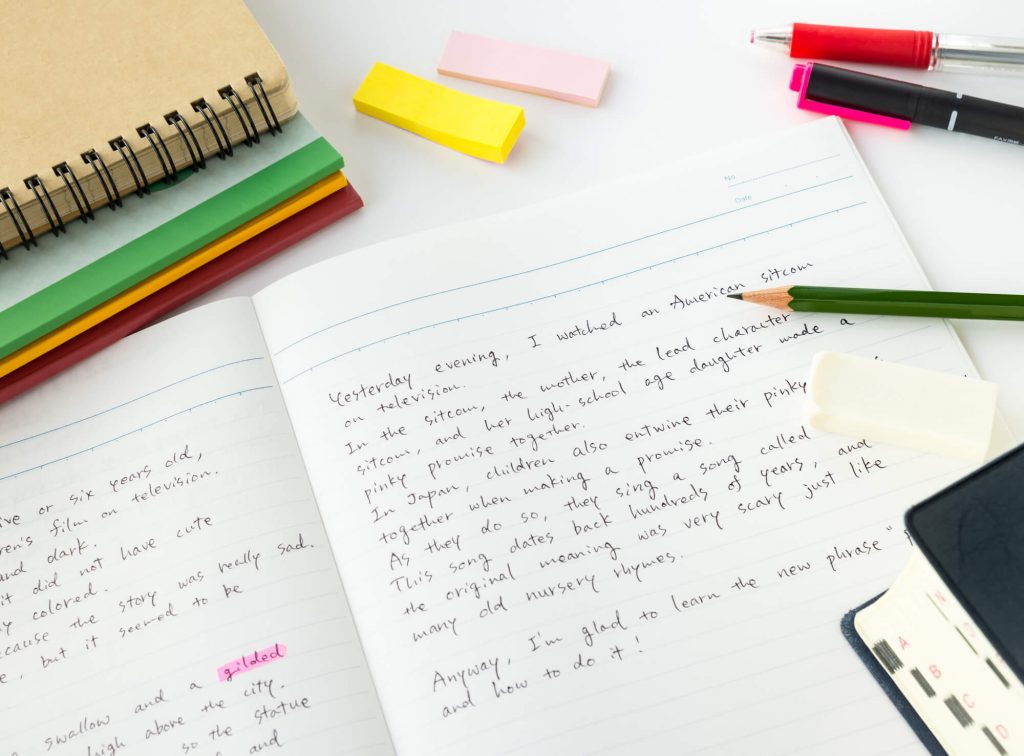 ive or six years old,
ren's film on television.
and dark.
it did not have cute
y colored.
ecause the story was really sad.
, but it seemed to be
swallow and a gilded
high above the city.
so the statue
and
No.
Date
Yesterday evening, I watched an American sitcom
on television.
In the sitcom, the mother, the lead character
sitcom, and her high-school age daughter made a
pinky promise together.
In Japan, children also entwine their pinky
together when making a promise.
As they do so, they sing a song called
This song dates back hundreds of years, and
the original meaning was very scary just like
many old nursery rhymes.
Anyway, I'm glad to learn the new phrase "
and how to do it!
A
B
C
D